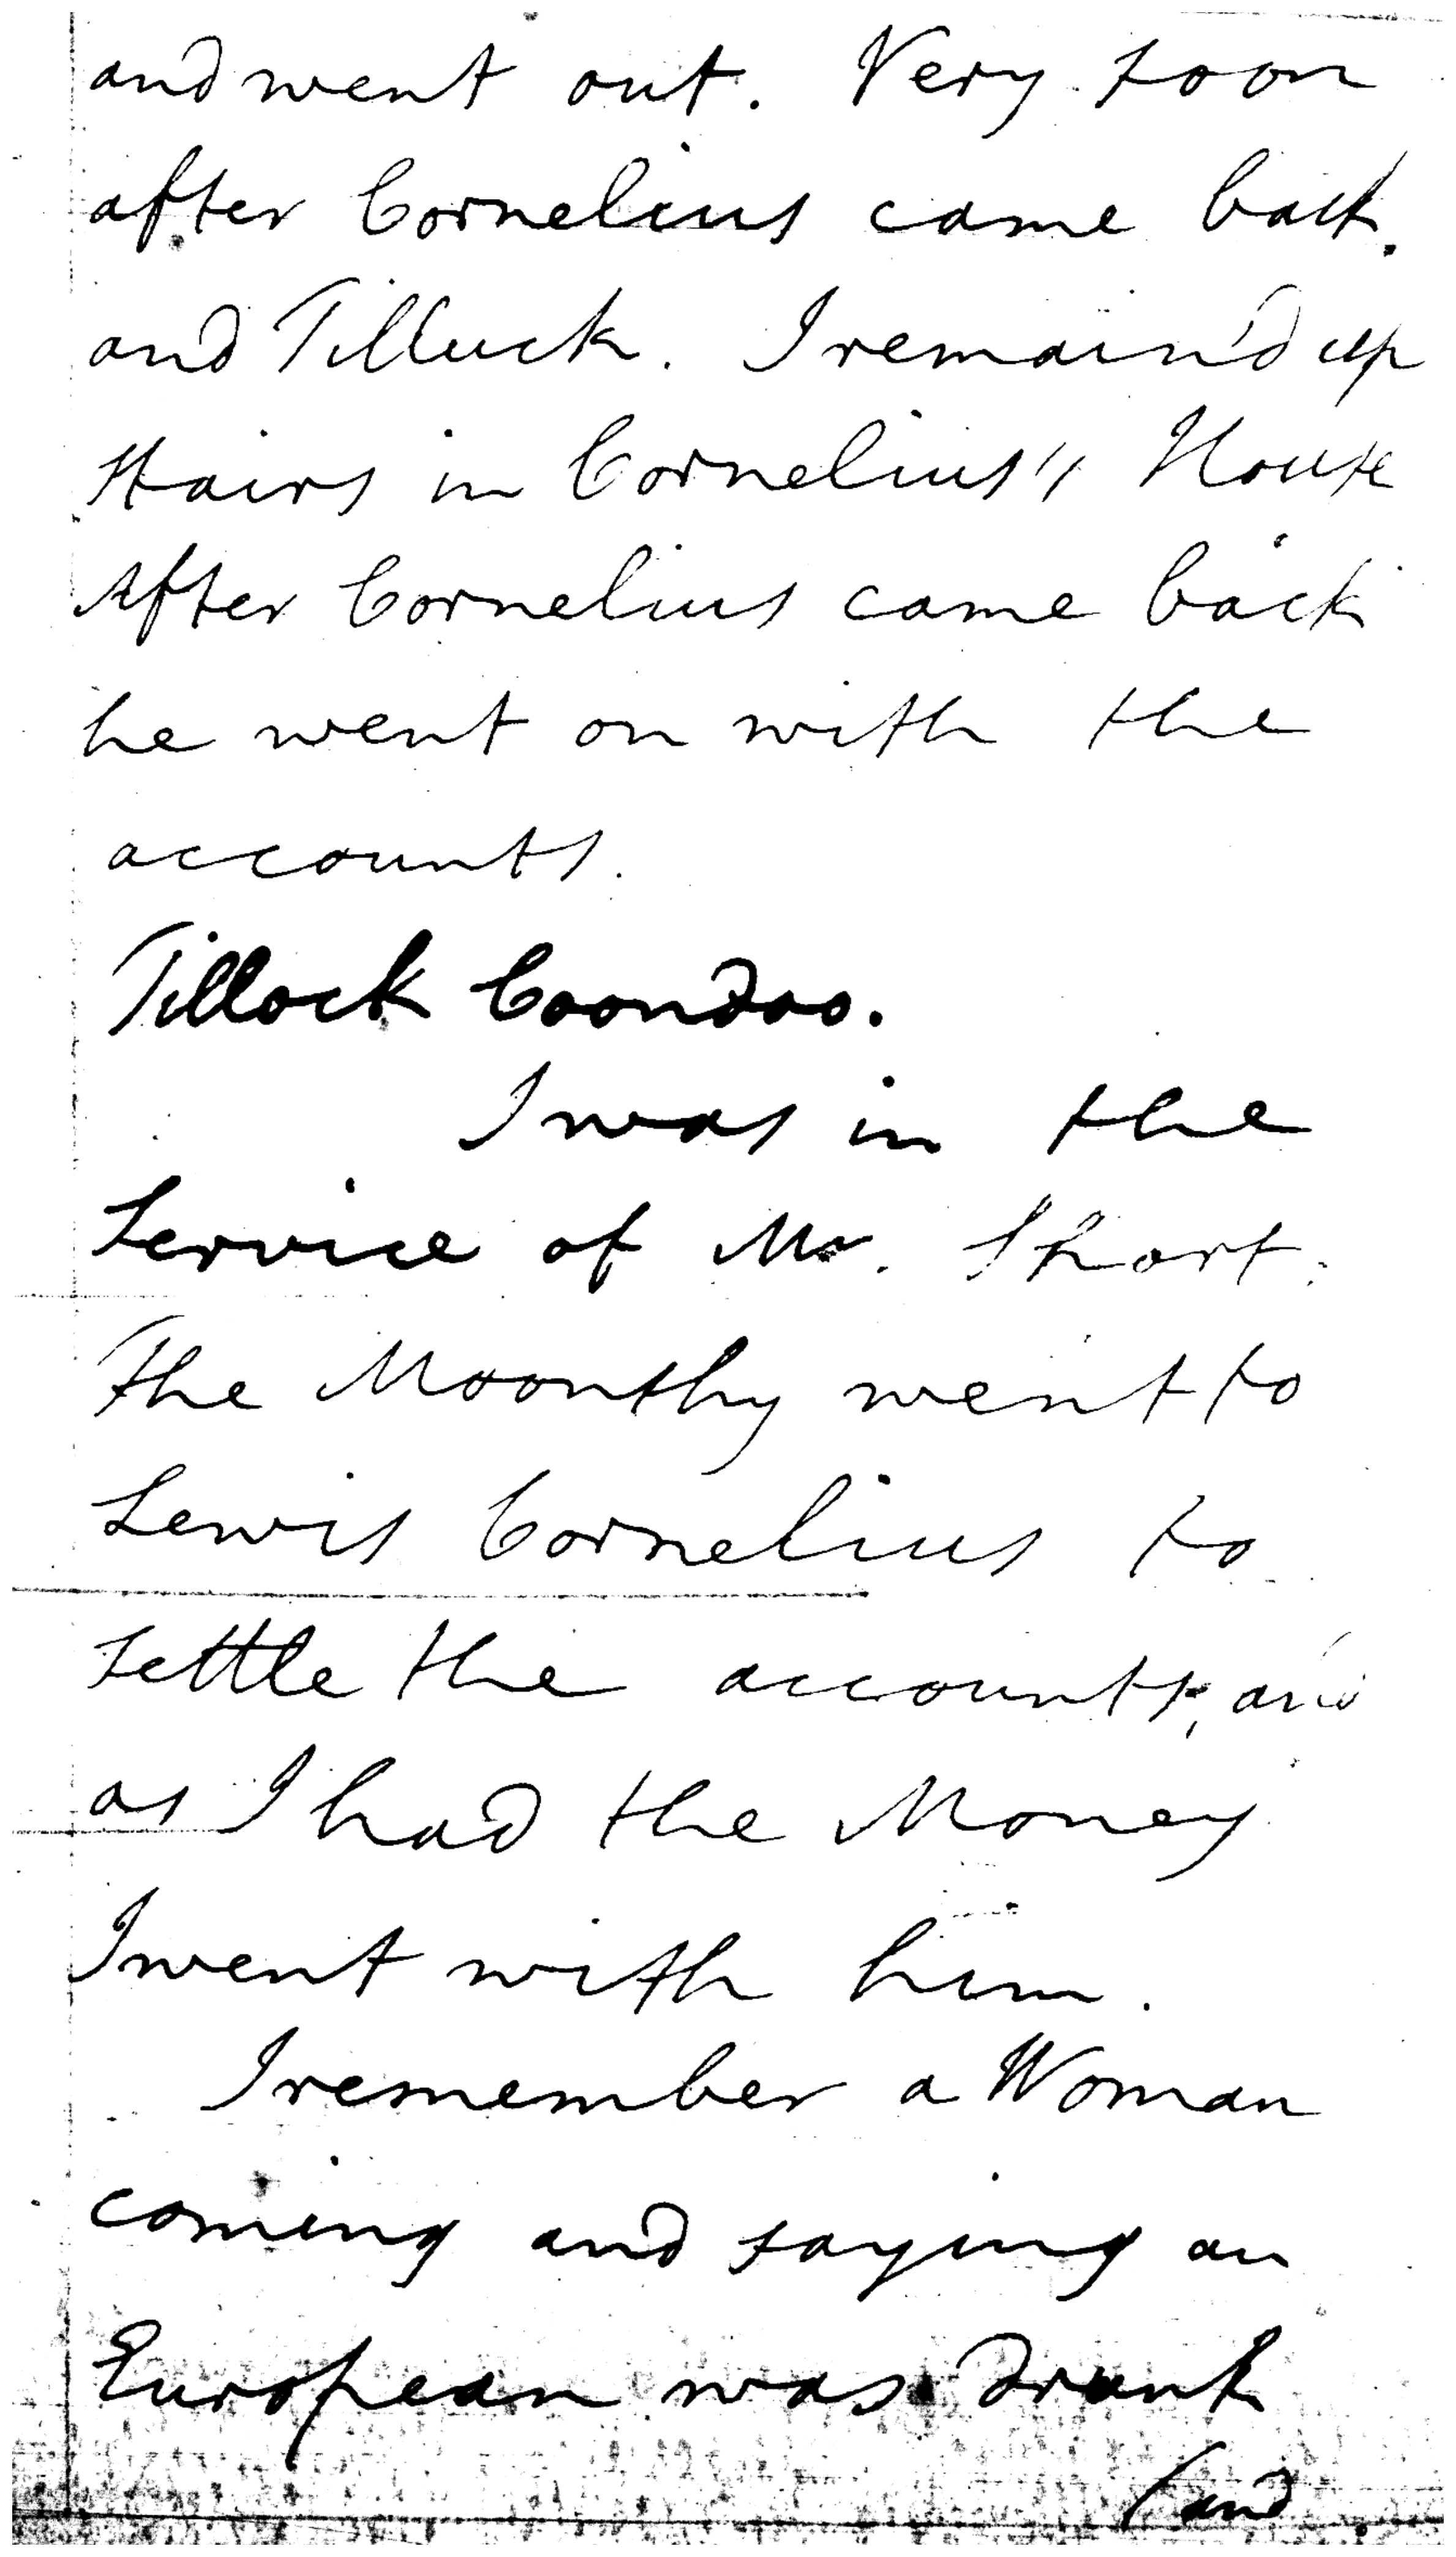 and went out. Very soon
after Cornelius came back.
and Tilluck. I remain'd up
Stairs in Cornelius's House
After Cornelius came back
he went on with the
accounts.
Tillock Coondoo.
I was in the
Service of Mr. Short.
The Moonshy went to
Lewis Cornelius to
settle the accounts, and
as I had the Money
I went with him.
I remember a Woman
coming and saying an
European was drunk
(and